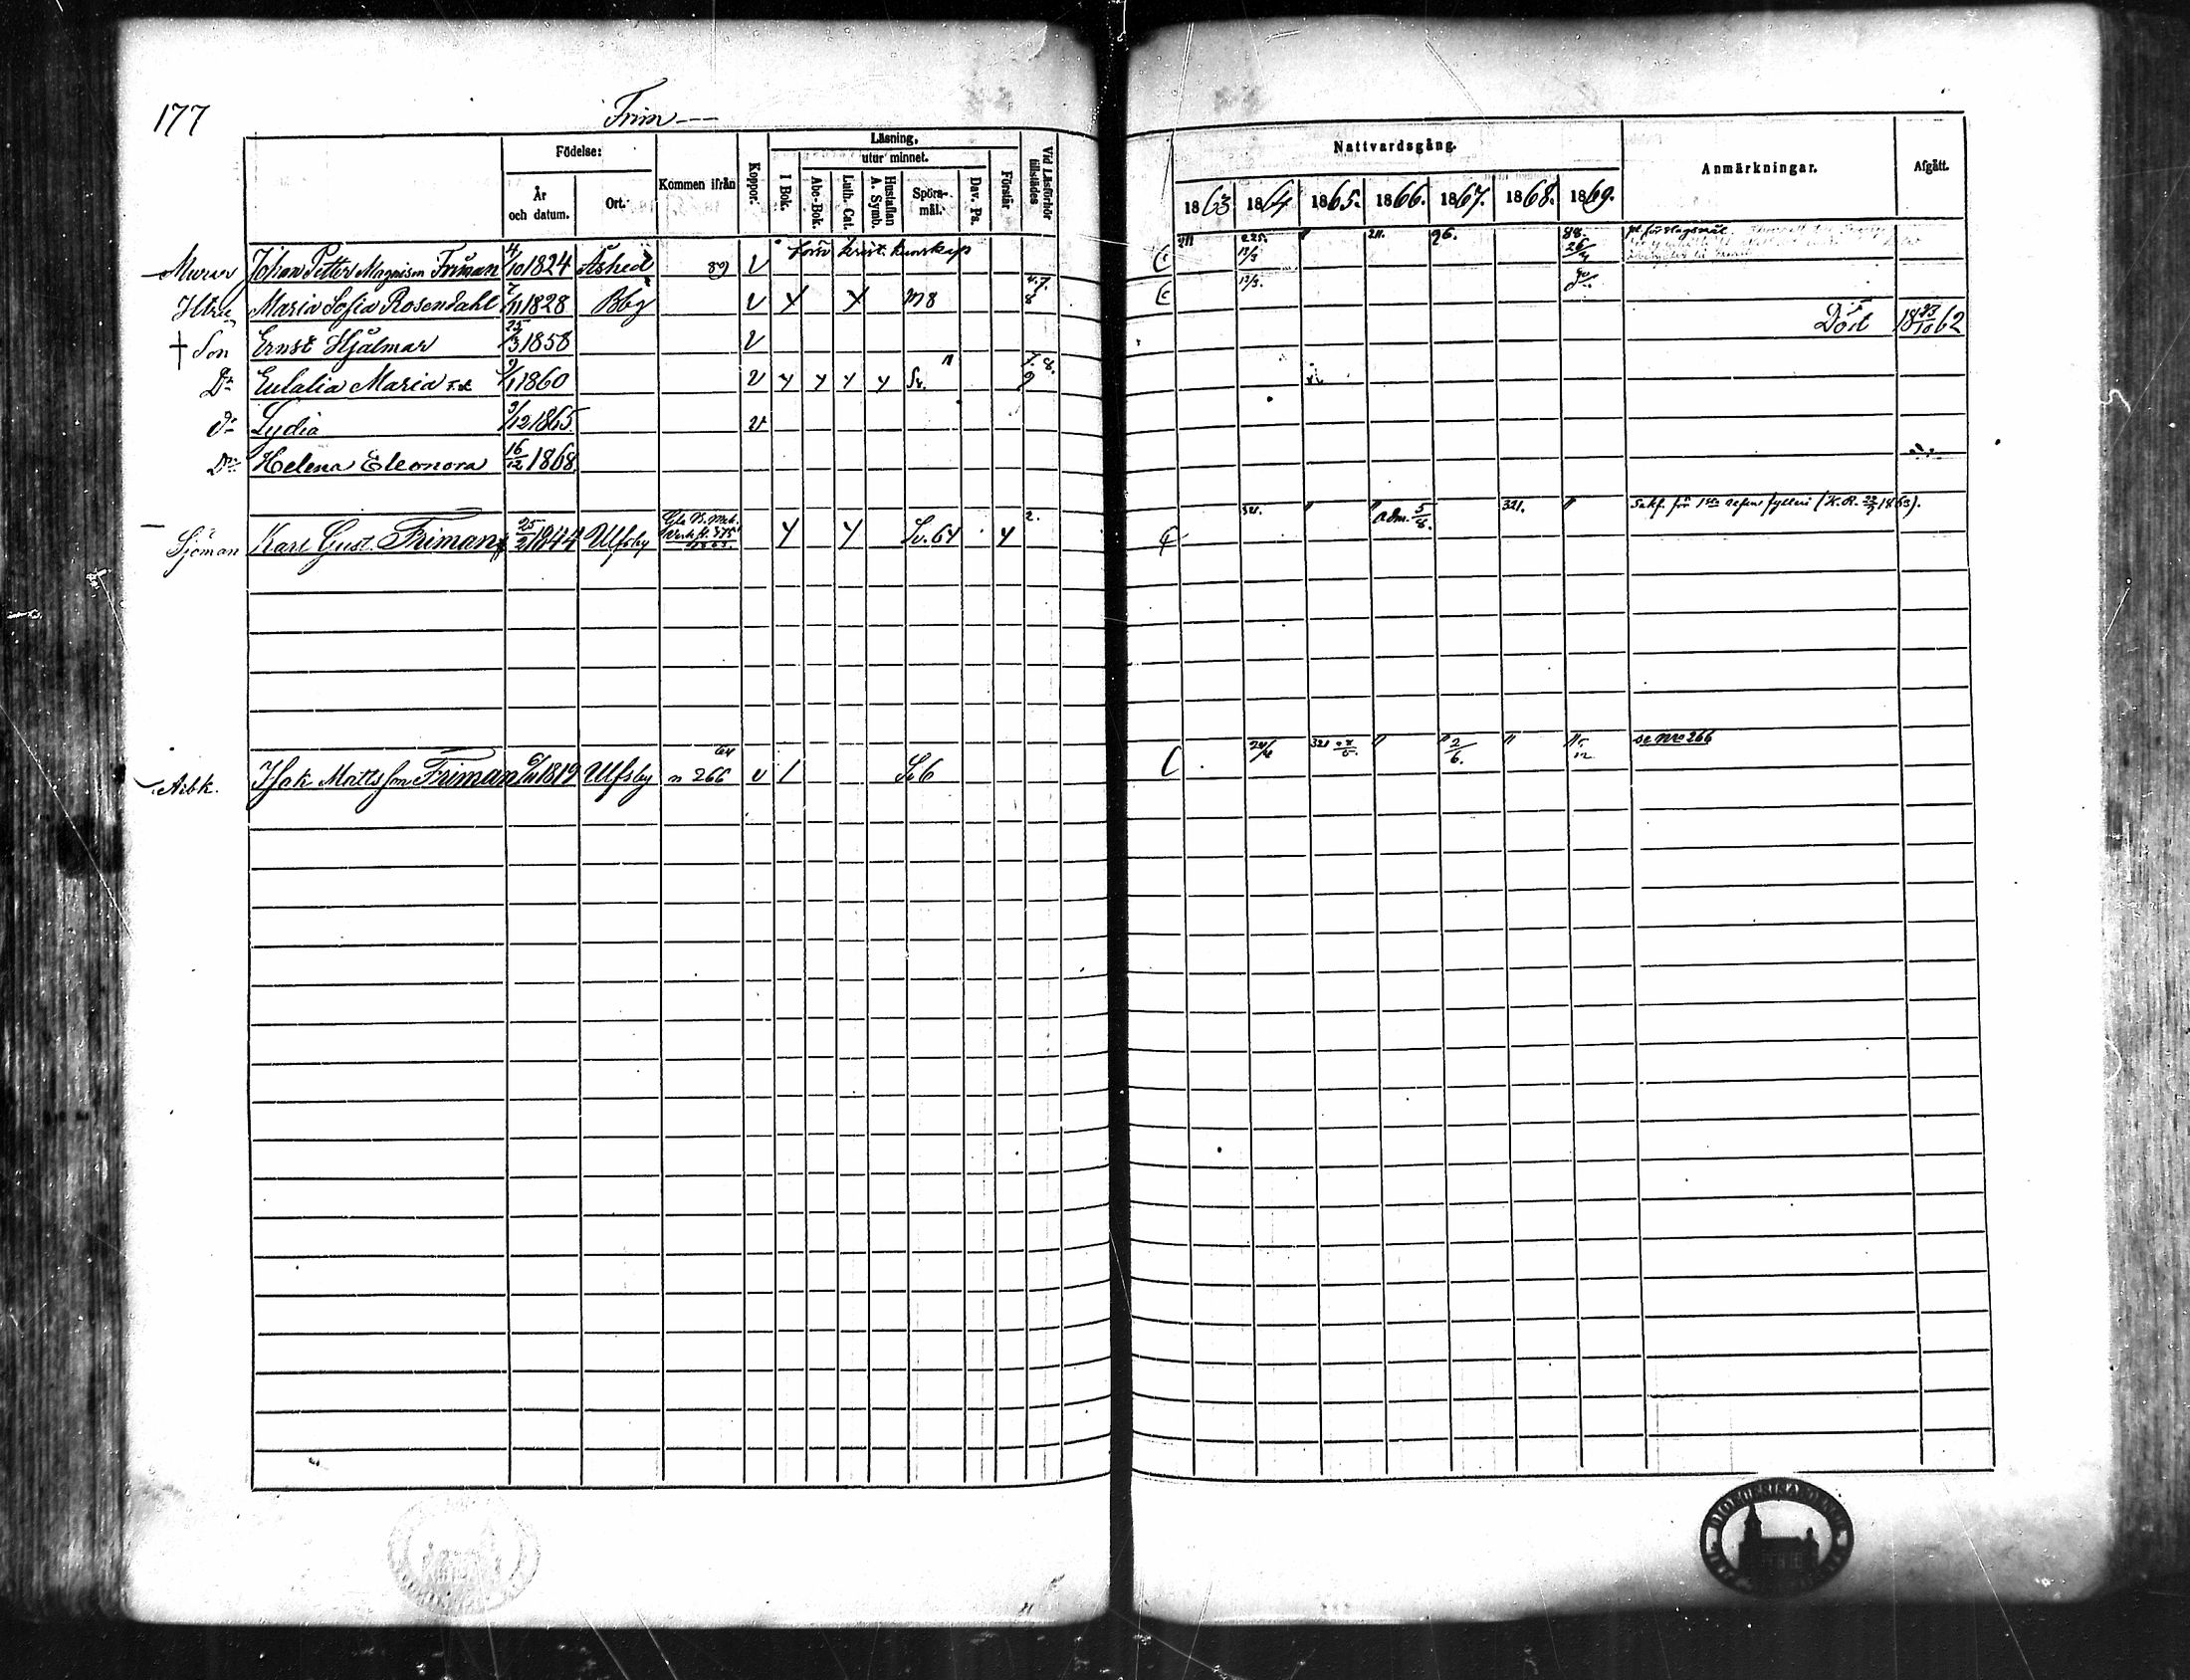 177
Frim
Födelse:
År och datum.
Ort.
Kommen ifrån
Koppor.
Läsning,
utur minnet.
I Bok.
Abc-Bok.
Luth. Cat.
Hustaflan A. Symb.
Spörs-mål.
Dav. Ps.
Förstår
Vid Läsförhör tillstädes
Nattvardsgång.
1863 1864 1865. 1866. 1867. 1868. 1869.
Anmärkningar.
Afgått.
Murar Johan Petter Magnison Friman 4/10 1824 Åshed 89 v förs. krist. kunskap 211 225. 12/3 " 211. 96. 88. 26/4
Htru Maria Sofia Rosendahl 7/11 1828 Bbg v y y M8 4.7. 8 12/3.
† Son Ernst Hjalmar 25/3 1858 v Död 18 23/10 62
Dr Eulalia Maria 9/1 1860 v y y y y Sv. 7. 8. 9
dr Lydia 9/12 1865 v
Dr Helena Eleonora 16/12 1868
Sjöman Karl Gust. Friman 25/2 1844 Ulfsby 1865. y y Sv. 64 y 2. 321. " " adm. 5/8. 321. " Sakf. för 1sta resan fylleri (K.R. 22/7 1863).
Arbk. Isak Mattsson Friman 1819 Ulfsby n 266 64 v / Sv 6 24/4 321 " " 2/6. " se nro 266